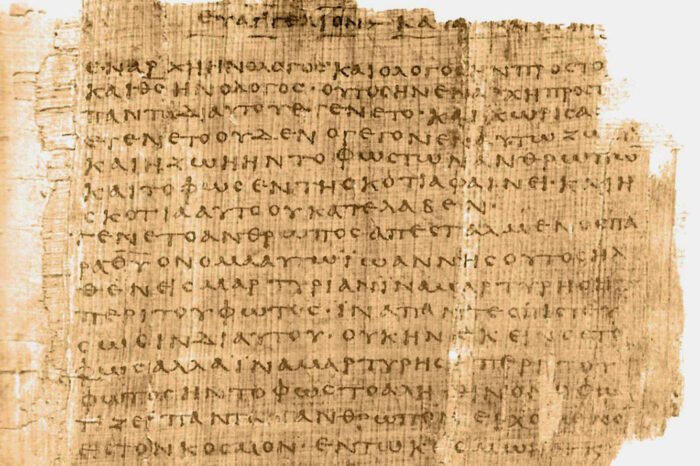 ΕΥΑΓΓΕΛΙΟΝ ΚΑΤΑ
ΕΝΑΡΧΗΗΝΟΛΟΓΟϹΚΑΙΟΛΟΓΟϹΗΝΠΡΟϹΤΟ
ΚΑΙΘ̅Ϲ̅ΗΝΟΛΟΓΟϹ·ΟΥΤΟϹΗΝΕΝΑΡΧΗΠΡΟϹΤ
ΠΑΝΤΑΔΙΑΥΤΟΥΕΓΕΝΕΤΟ·ΚΑΙΧΩΡΙϹΑ
ΕΓΕΝΕΤΟΟΥΔΕΝΟΓΕΓΟΝΕΝΑΥΤΩΖΩ
ΚΑΙΗΖΩΗΗΝΤΟΦΩϹΤΩΝΑΝΘΡΩΠΩ
ΚΑΙΤΟΦΩϹΕΝΤΗϹΚΟΤΙΑΦΑΙΝΕΙ·ΚΑΙΗ
ϹΚΟΤΙΑΑΥΤΟΟΥΚΑΤΕΛΑΒΕΝ·
ΕΓΕΝΕΤΟΑΝΘΡΩΠΟϹΑΠΕϹΤΑΛΜΕΝΟϹΠΑ
ΡΑΘ̅Υ̅ΟΝΟΜΑΑΥΤΩΪΩΑΝΝΗϹΟΥΤΟϹΗΛ
ΘΕΝΕΙϹΜΑΡΤΥΡΙΑΝΙΝΑΜΑΡΤΥΡΗϹΗ
ΠΕΡΙΤΟΥΦΩΤΟϹ·ΙΝΑΠΑΝΤΕϹΠΙϹΤΕΥ
ϹΩϹΙΝΔΙΑΥΤΟΥ·ΟΥΚΗΝΕΚΕΙΝΟϹΤΟ
ΦΩϹΑΛΛΑΙΝΑΜΑΡΤΥΡΗϹΗΠΕΡΙΤΟΥ
ΦΩΤΟϹΗΝΤΟΦΩϹΤΟΑΛΗΘΙΝΟΝΟΦΩ
ΤΙΖΕΙΠΑΝΤΑΑΝΘΡΩΠΟΝΕΡΧΟΜΕΝΟ
ΕΙϹΤΟΝΚΟϹΜΟΝ·ΕΝΤΩΚΟϹΜΩΗΝ